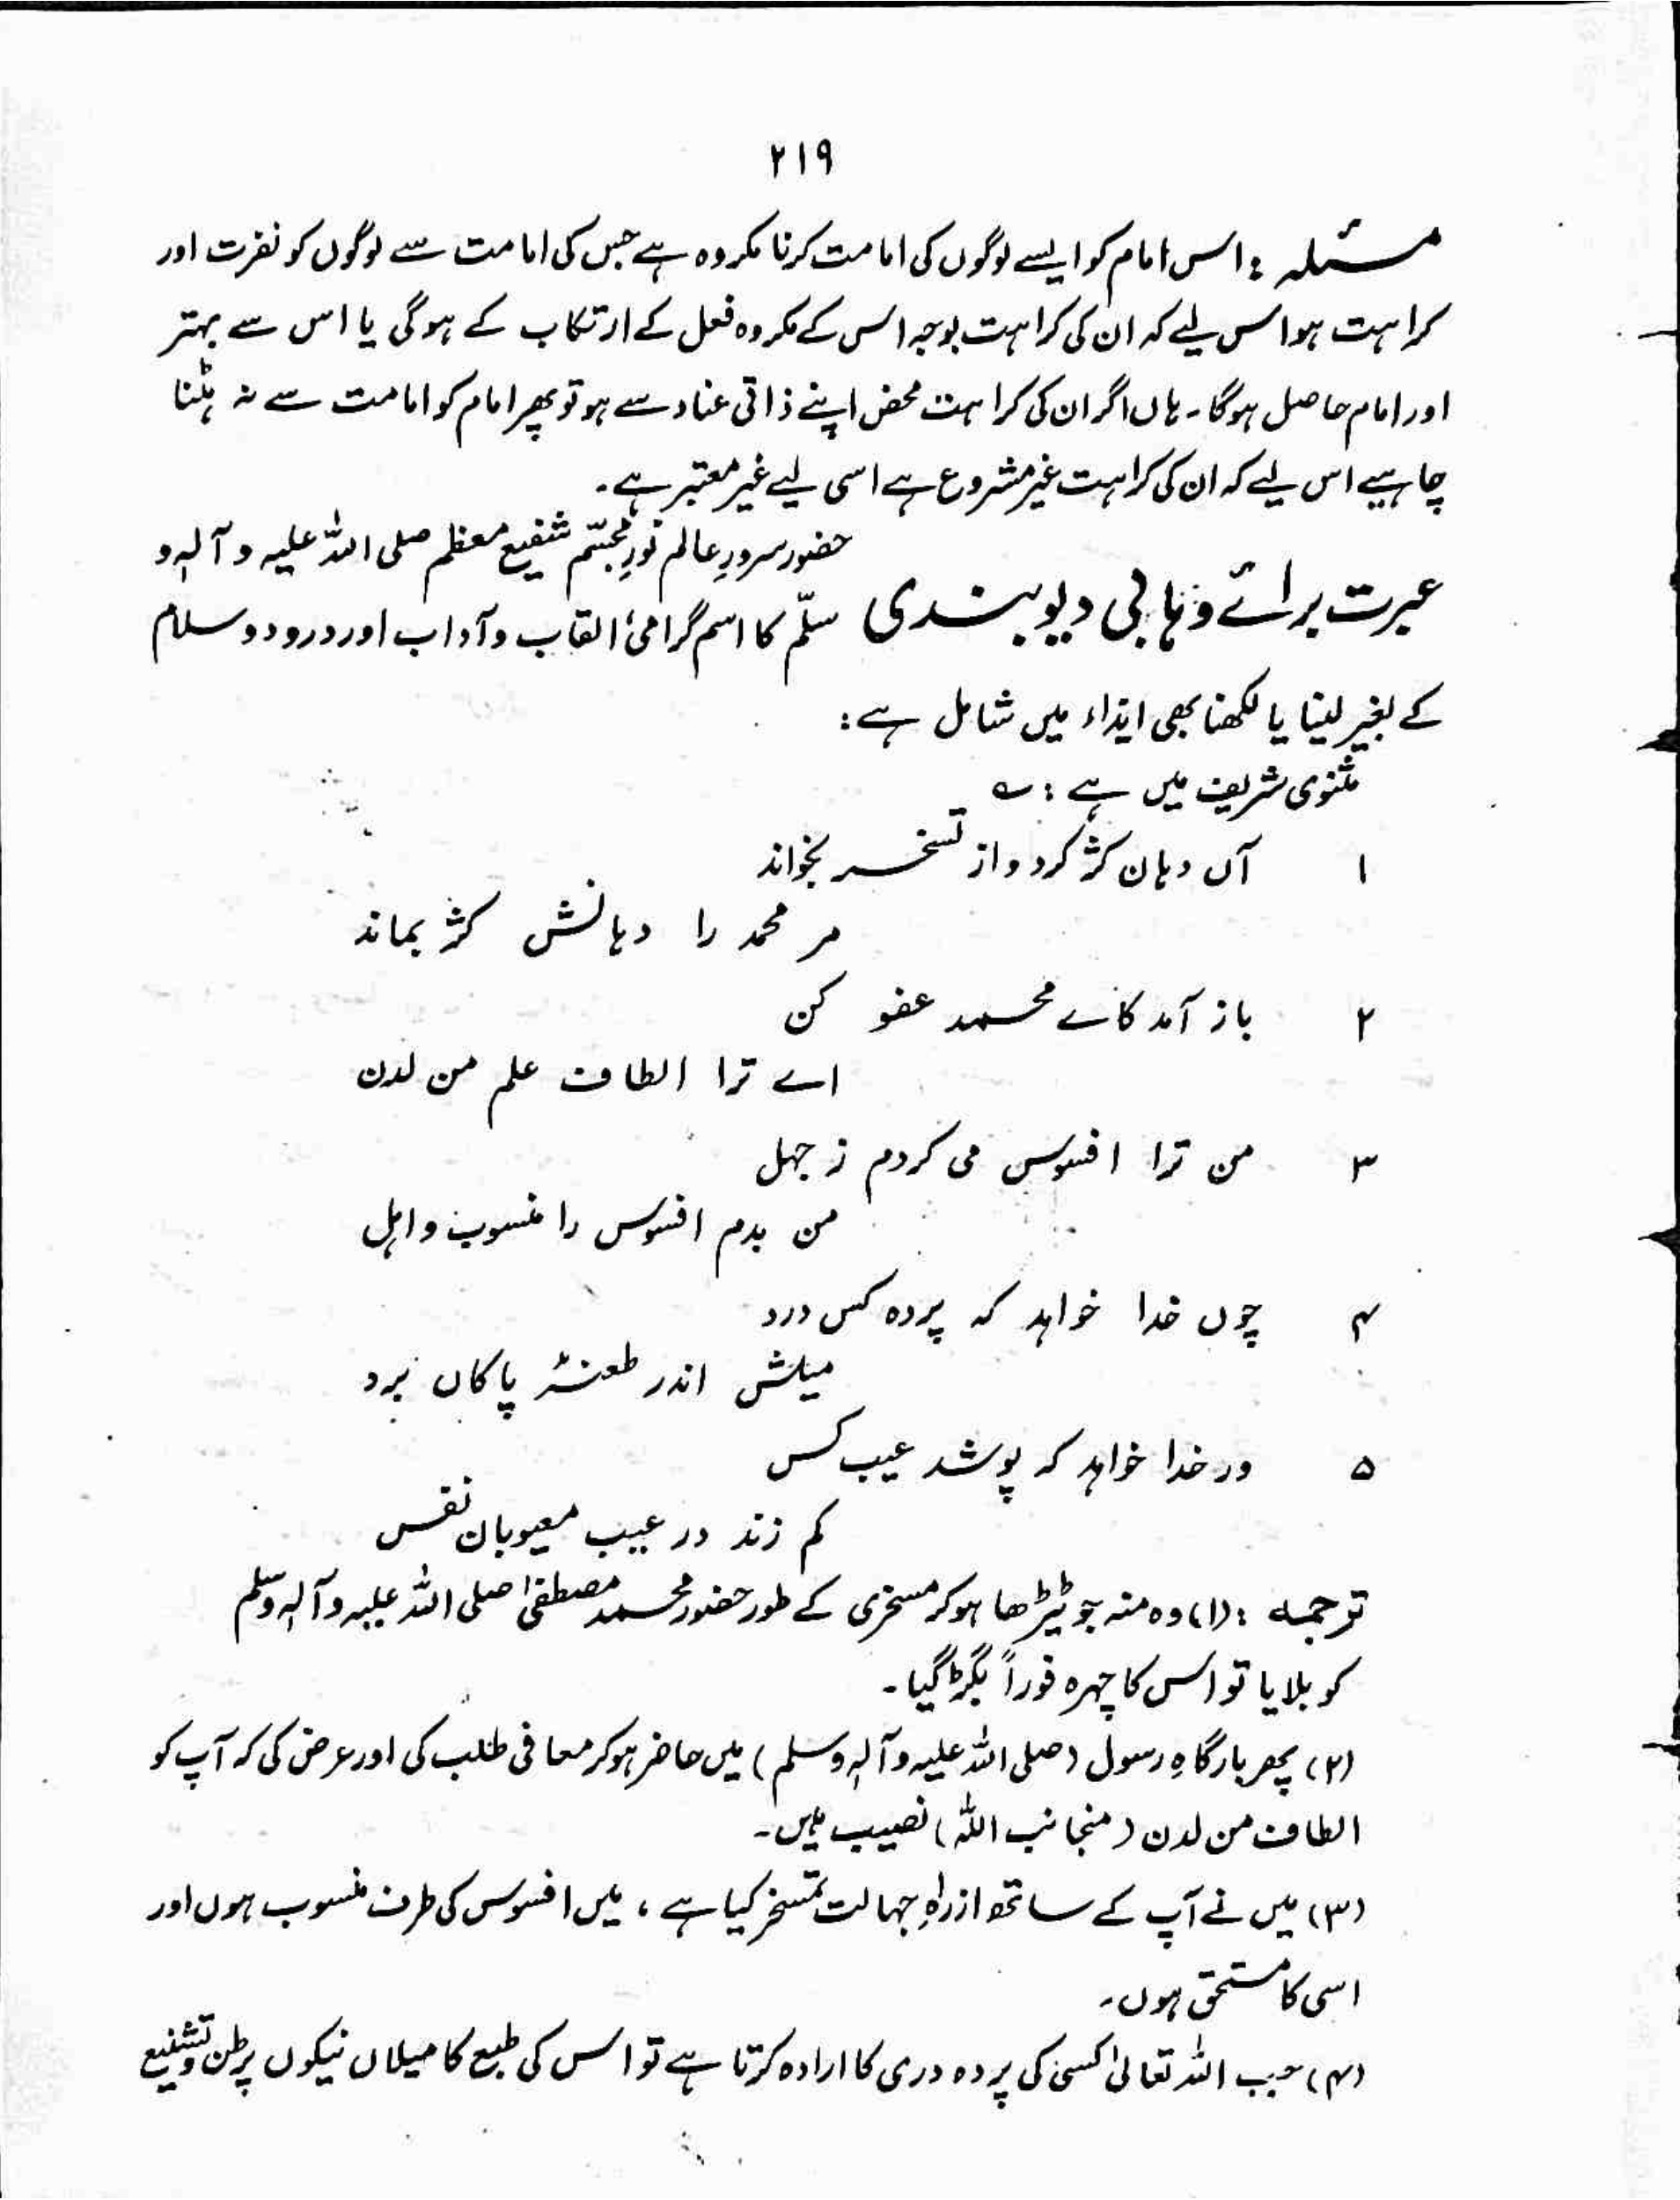 ۲۱۹
مسئلہ : اس امام کو ایسے لوگوں کی امامت کرنا مکروہ ہے جس کی امامت سے لوگوں کو نفرت اور
کراہت ہو اس لیے کہ ان کی کراہت بوجہ اس کے مکروہ فعل کے ارتکاب کے ہو گی یا اس سے بہتر
اور امام حاصل ہوگا۔ ہاں اگر ان کی کراہت محض اپنے ذاتی عناد سے ہو تو پھر امام کو امامت سے نہ ہٹنا
چاہیے اس لیے کہ ان کی کراہت غیر مشروع ہے اسی لیے غیر معتبر ہے۔
حضور سرورِ عالم نورِ مجسّم شفیع معظم صلی اللہ علیہ و آلہٖ و
عبرت برائے وہابی دیوبندی سلّم کا اسم گرامی القاب و آداب اور درود و سلام
کے بغیر لینا یا لکھنا بھی ایذاء میں شامل ہے :
مثنوی شریف میں ہے : ؎
۱ آں دہان کژ کرد و از تسخر بخواند
مر محمد را دہانش کژ بماند
۲ باز آمد کاے محمد عفو کن
اے ترا الطاف علم من لدن
۳ من ترا افسوس می کردم ز جہل
من بدم افسوس را منسوب و اہل
۴ چوں خدا خواہد کہ پردہ کس درد
میلش اندر طعنۂ پاکاں برد
۵ ور خدا خواہد کہ پوشد عیب کس
کم زند در عیب معیوبان نفس
ترجمہ : (۱) وہ منہ جو ٹیڑھا ہو کر مسخری کے طور حضور محمد مصطفیٰ صلی اللہ علیہ و آلہٖ وسلم
کو بلایا تو اس کا چہرہ فوراً بگڑ گیا۔
(۲) پھر بارگاہِ رسول (صلی اللہ علیہ و آلہٖ وسلم) میں حاضر ہو کر معافی طلب کی اور عرض کی کہ آپ کو
الطاف من لدن (منجانب اللہ) نصیب ہیں۔
(۳) میں نے آپ کے ساتھ ازراہِ جہالت تمسخر کیا ہے ، میں افسوس کی طرف منسوب ہوں اور
اسی کا مستحق ہوں۔
(۴) جب اللہ تعالیٰ کسی کی پردہ دری کا ارادہ کرتا ہے تو اس کی طبع کا میلاں نیکوں پر طعن و تشنیع